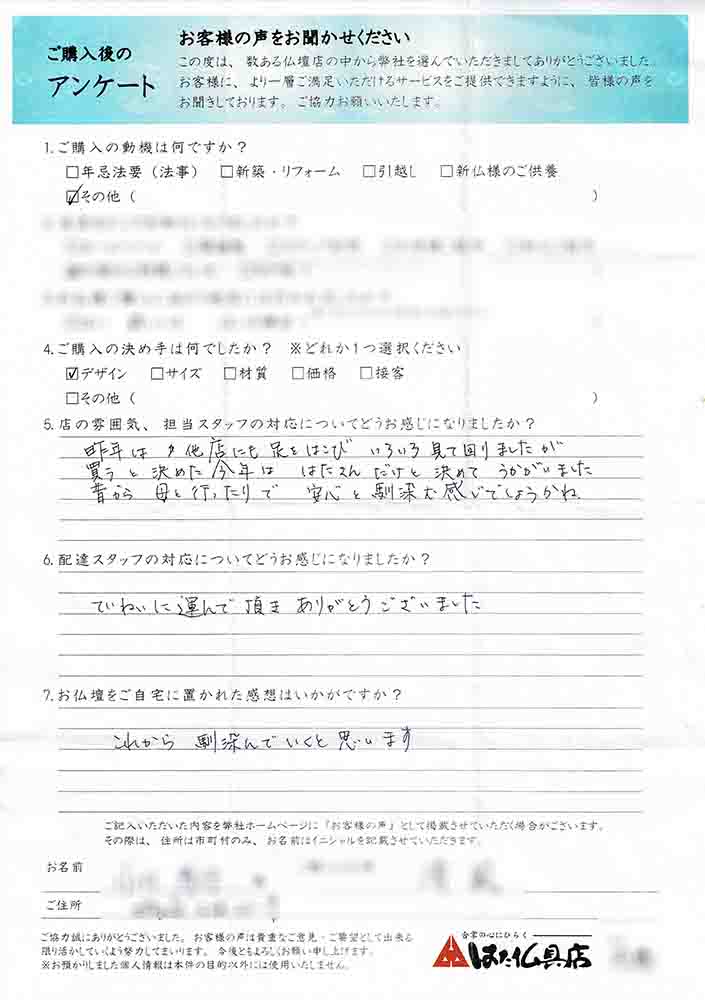 ご購入後の
アンケート
お客様の声をお聞かせください
この度は、数ある仏壇店の中から弊社を選んでいただきましてありがとうございました。
お客様に、より一層ご満足いただけるサービスをご提供できますように、皆様の声を
お聞きしております。ご協力お願いいたします。
1.ご購入の動機は何ですか？
□年忌法要（法事） □新築・リフォーム □引越し □新仏様のご供養
☑その他（ ）
4.ご購入の決め手は何でしたか？ ※どれか1つ選択ください
☑デザイン □サイズ □材質 □価格 □接客
□その他（ ）
5.店の雰囲気、担当スタッフの対応についてどうお感じになりましたか？
昨年は 他店にも足をはこび いろいろ見て回りましたが
買うと決めた今年は はたさんだけと決めて うかがいました
昔から 母と行ったりで 安心と馴深む感じでしょうかね
6.配達スタッフの対応についてどうお感じになりましたか？
ていねいに運んで頂き ありがとうございました
7.お仏壇をご自宅に置かれた感想はいかがですか？
これから 馴深んでいくと思います
ご記入いただいた内容を弊社ホームページに『お客様の声』として掲載させていただく場合がございます。
その際は、住所は市町村のみ、お名前はイニシャルを記載させていただきます。
お名前
ご住所
ご協力誠にありがとうございました。お客様の声は貴重なご意見・ご要望として出来る
限り活かしていくよう努力してまいります。今後ともよろしくお願い申し上げます。
※お預かりしました個人情報は本件の目的以外には使用いたしません。
合掌の心にひらく
はた仏具店